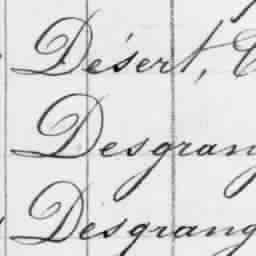 Désert,
Desgrang
Desgrang